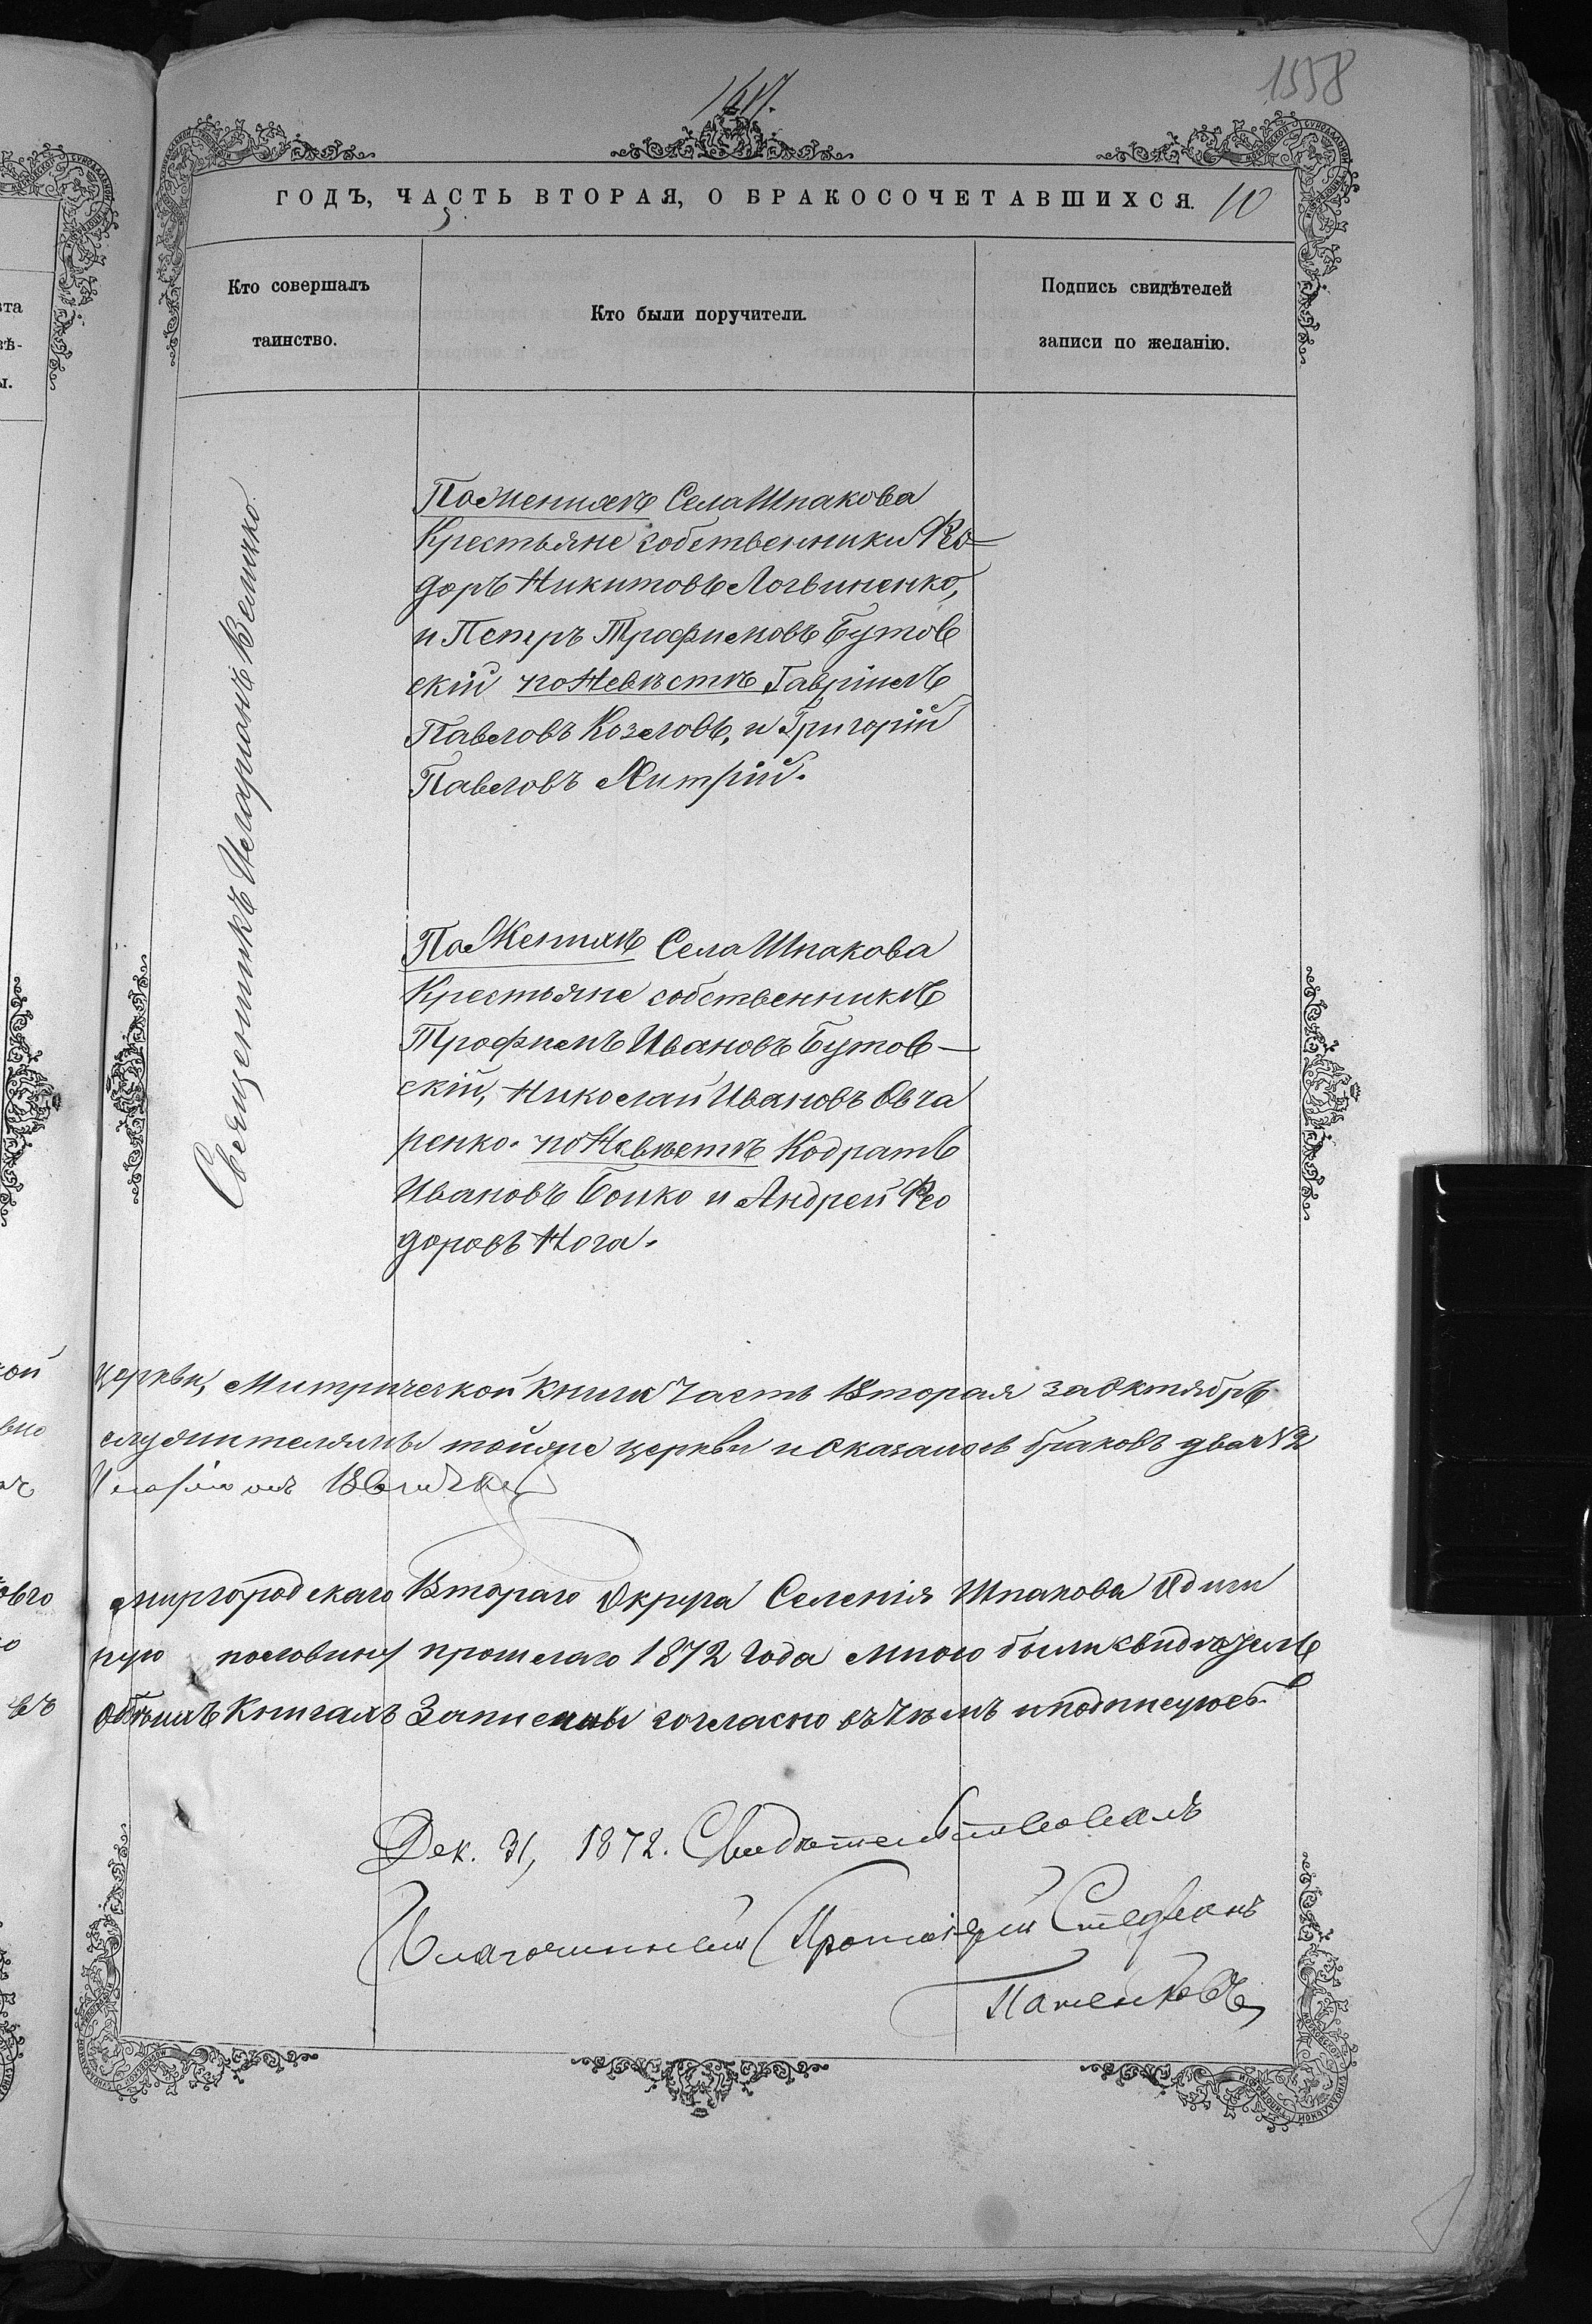 1558
ГОДЪ, ЧАСТЬ ВТОРАЯ, О БРАКОСОЧЕТАВШИХСЯ. 10
Кто совершалъ
таинство.
Кто были поручители.
Подпись свидѣтелей
записи по желанію.
Священникъ Иларіанъ Величко
По Женихѣ Села Шпакова
Крестьяне собственники Фео-
доръ Никитовъ Логвиненко,
и Петръ Трофимовъ Бутов
скій по Невѣстѣ Гавріилъ
Павловъ Козловъ, и Григорій
Павловъ Хитрій.
По Женихѣ Села Шпакова
Крестьяне собственникѣ
Трофимъ Ивановъ Бутов-
скій, Николай Ивановъ Овча
ренко. по Невѣстѣ Кодратъ
Ивановъ Бойко и Андрей Фео
доровъ Нога.
церкви, Митрической Книги Часть Вторая за Октябрь
служителями тойже церкви и Оказалось браковъ два №2
Величко
Миргородскаго Втораго Округа Селенія Шпакова
ную половину прошлаго 1872 Года мною были
Книгахъ Записаны согласно въ чемъ и подписуюсь
Дек. 31, 1872. Свидѣтельствовалъ
Благочинный Протоіерей Стефанъ